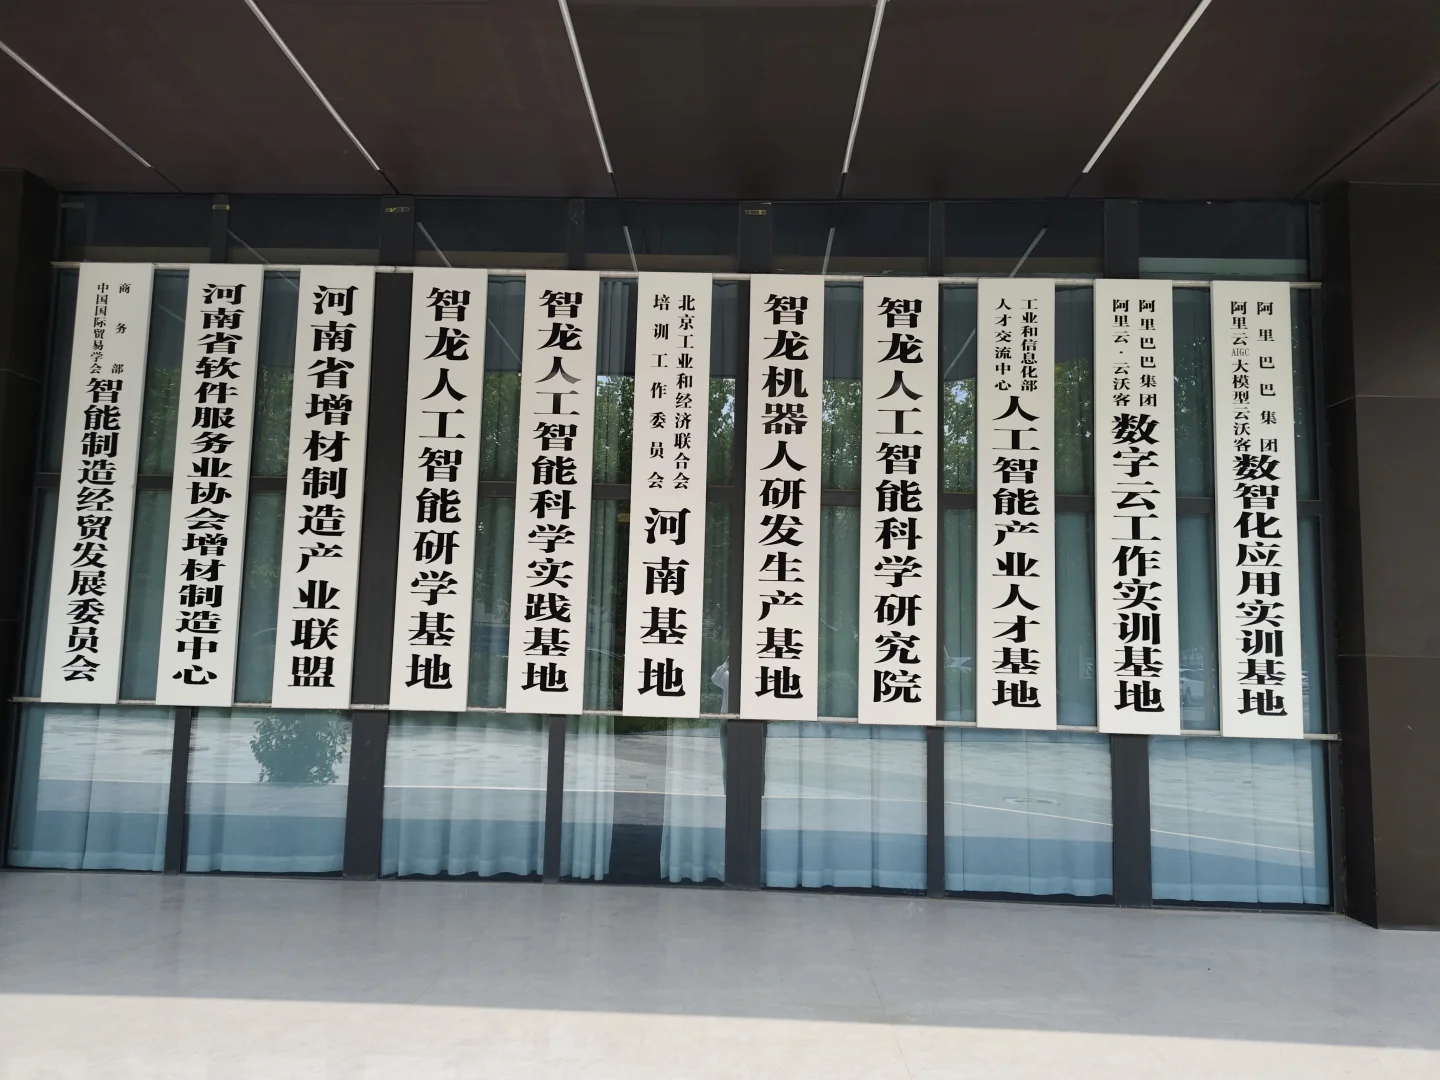 商务部
中国国际贸易学会
智能制造经贸发展委员会
河南省软件服务业协会增材制造中心
河南省增材制造产业联盟
智龙人工智能研学基地
智龙人工智能科学实践基地
北京工业和经济联合会
培训工作委员会
河南基地
智龙机器人研发生产基地
智龙人工智能科学研究院
工业和信息化部
人才交流中心
人工智能产业人才基地
阿里巴巴集团
阿里云·云沃客
数字云工作实训基地
阿里巴巴集团
阿里云AIGC大模型云沃客
数智化应用实训基地